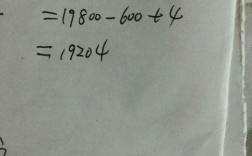 =19800-600+4
=19204